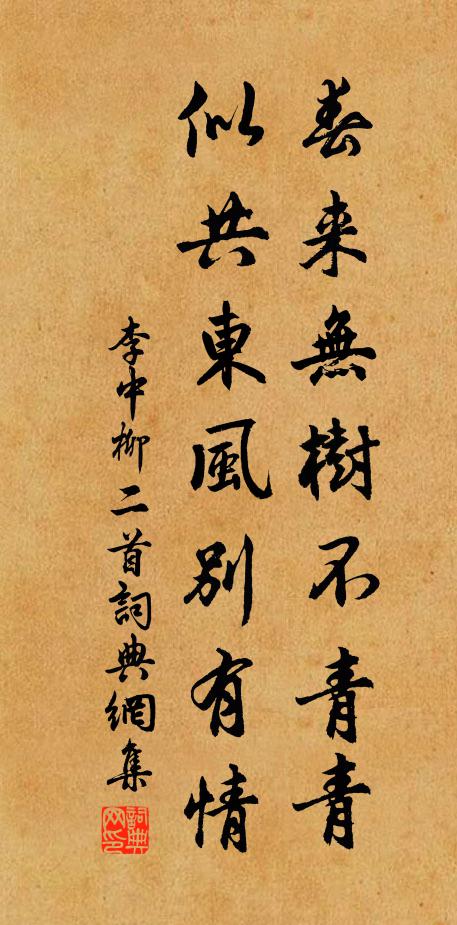 春来無樹不青青
似共東風别有情
李中柳二首詞典網集
詞典网印